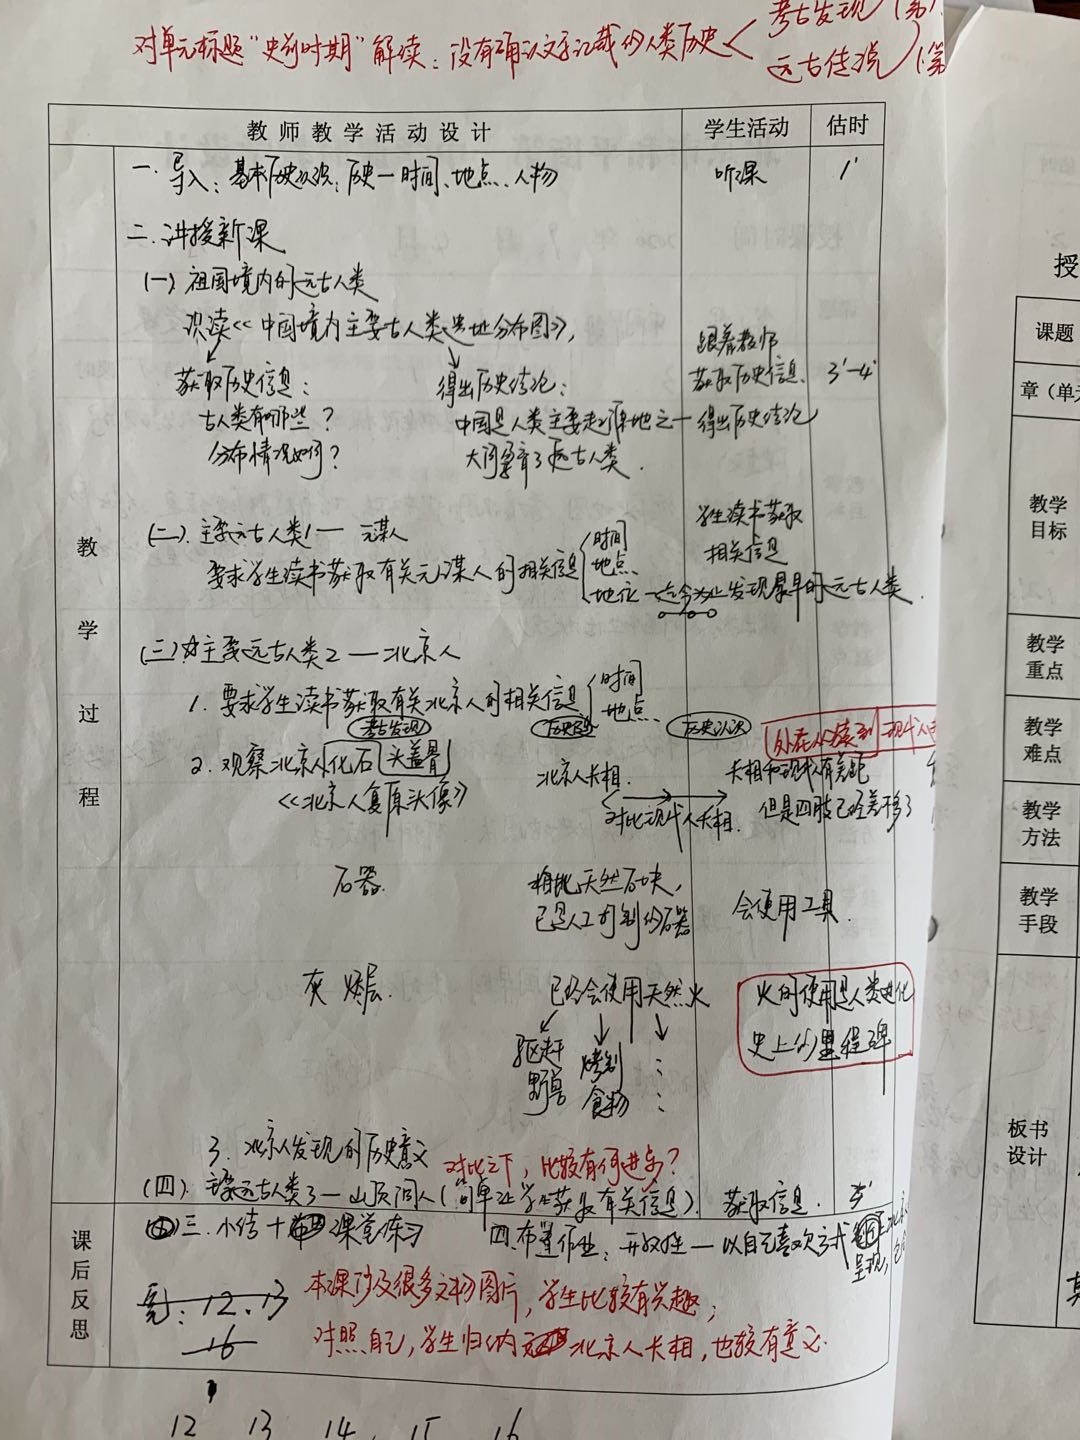 对单元标题"史前时期"解读：没有确认文字记载的人类历史
考古发现（第
远古传说（第
教师教学活动设计 学生活动 估时
一、导入：基本历史认识：历史—时间、地点、人物 听课 1'
二、讲授新课
(一) 祖国境内的远古人类
识读《中国境内主要古人类遗址分布图》，
跟着教师
获取历史信息： 得出历史结论： 获取历史信息、 3'-4'
古人类有哪些？ 中国是人类主要起源地之一 得出历史结论
分布情况如何？ 大河孕育了远古人类．
学生读书获取
(二) 主要远古人类1—元谋人 时间
相关信息
要求学生读书获取有关元谋人的相关信息 地点
地位—迄今为止发现最早的远古人类．
(三) 主要远古人类2—北京人
1. 要求学生读书获取有关北京人的相关信息 时间
地点
考古发现 历史认识
外在从猿到现代人
2. 观察北京人化石 头盖骨 北京人长相． 长相和现代人有差距
《北京人复原头像》 对比现代人长相． 但是四肢已经差不多了
石器． 相比天然石块，
已是人工打制的石器 会使用工具．
灰烬层． 已经会使用天然火 火的使用是人类进化
史上的里程碑
驱赶 烤制 ：
野兽 食物 ：
3. 北京人发现的历史意义 对比之下，比较有何进步？
(四) 主要远古人类3—山顶洞人（简单让学生获取有关信息） 获取信息． 3'
三、小结＋课堂练习 四、布置作业：开放性—以自己喜欢方式
呈现，
12、13
16
本课涉及很多文物图片，学生比较有兴趣；
对照自己，学生归纳北京人长相，也较有意义．
12 13 14 15 16
教
学
过
程
课
后
反
思
授
课题
章（单元
教学
目标
教学
重点
教学
难点
教学
方法
教学
手段
板书
设计